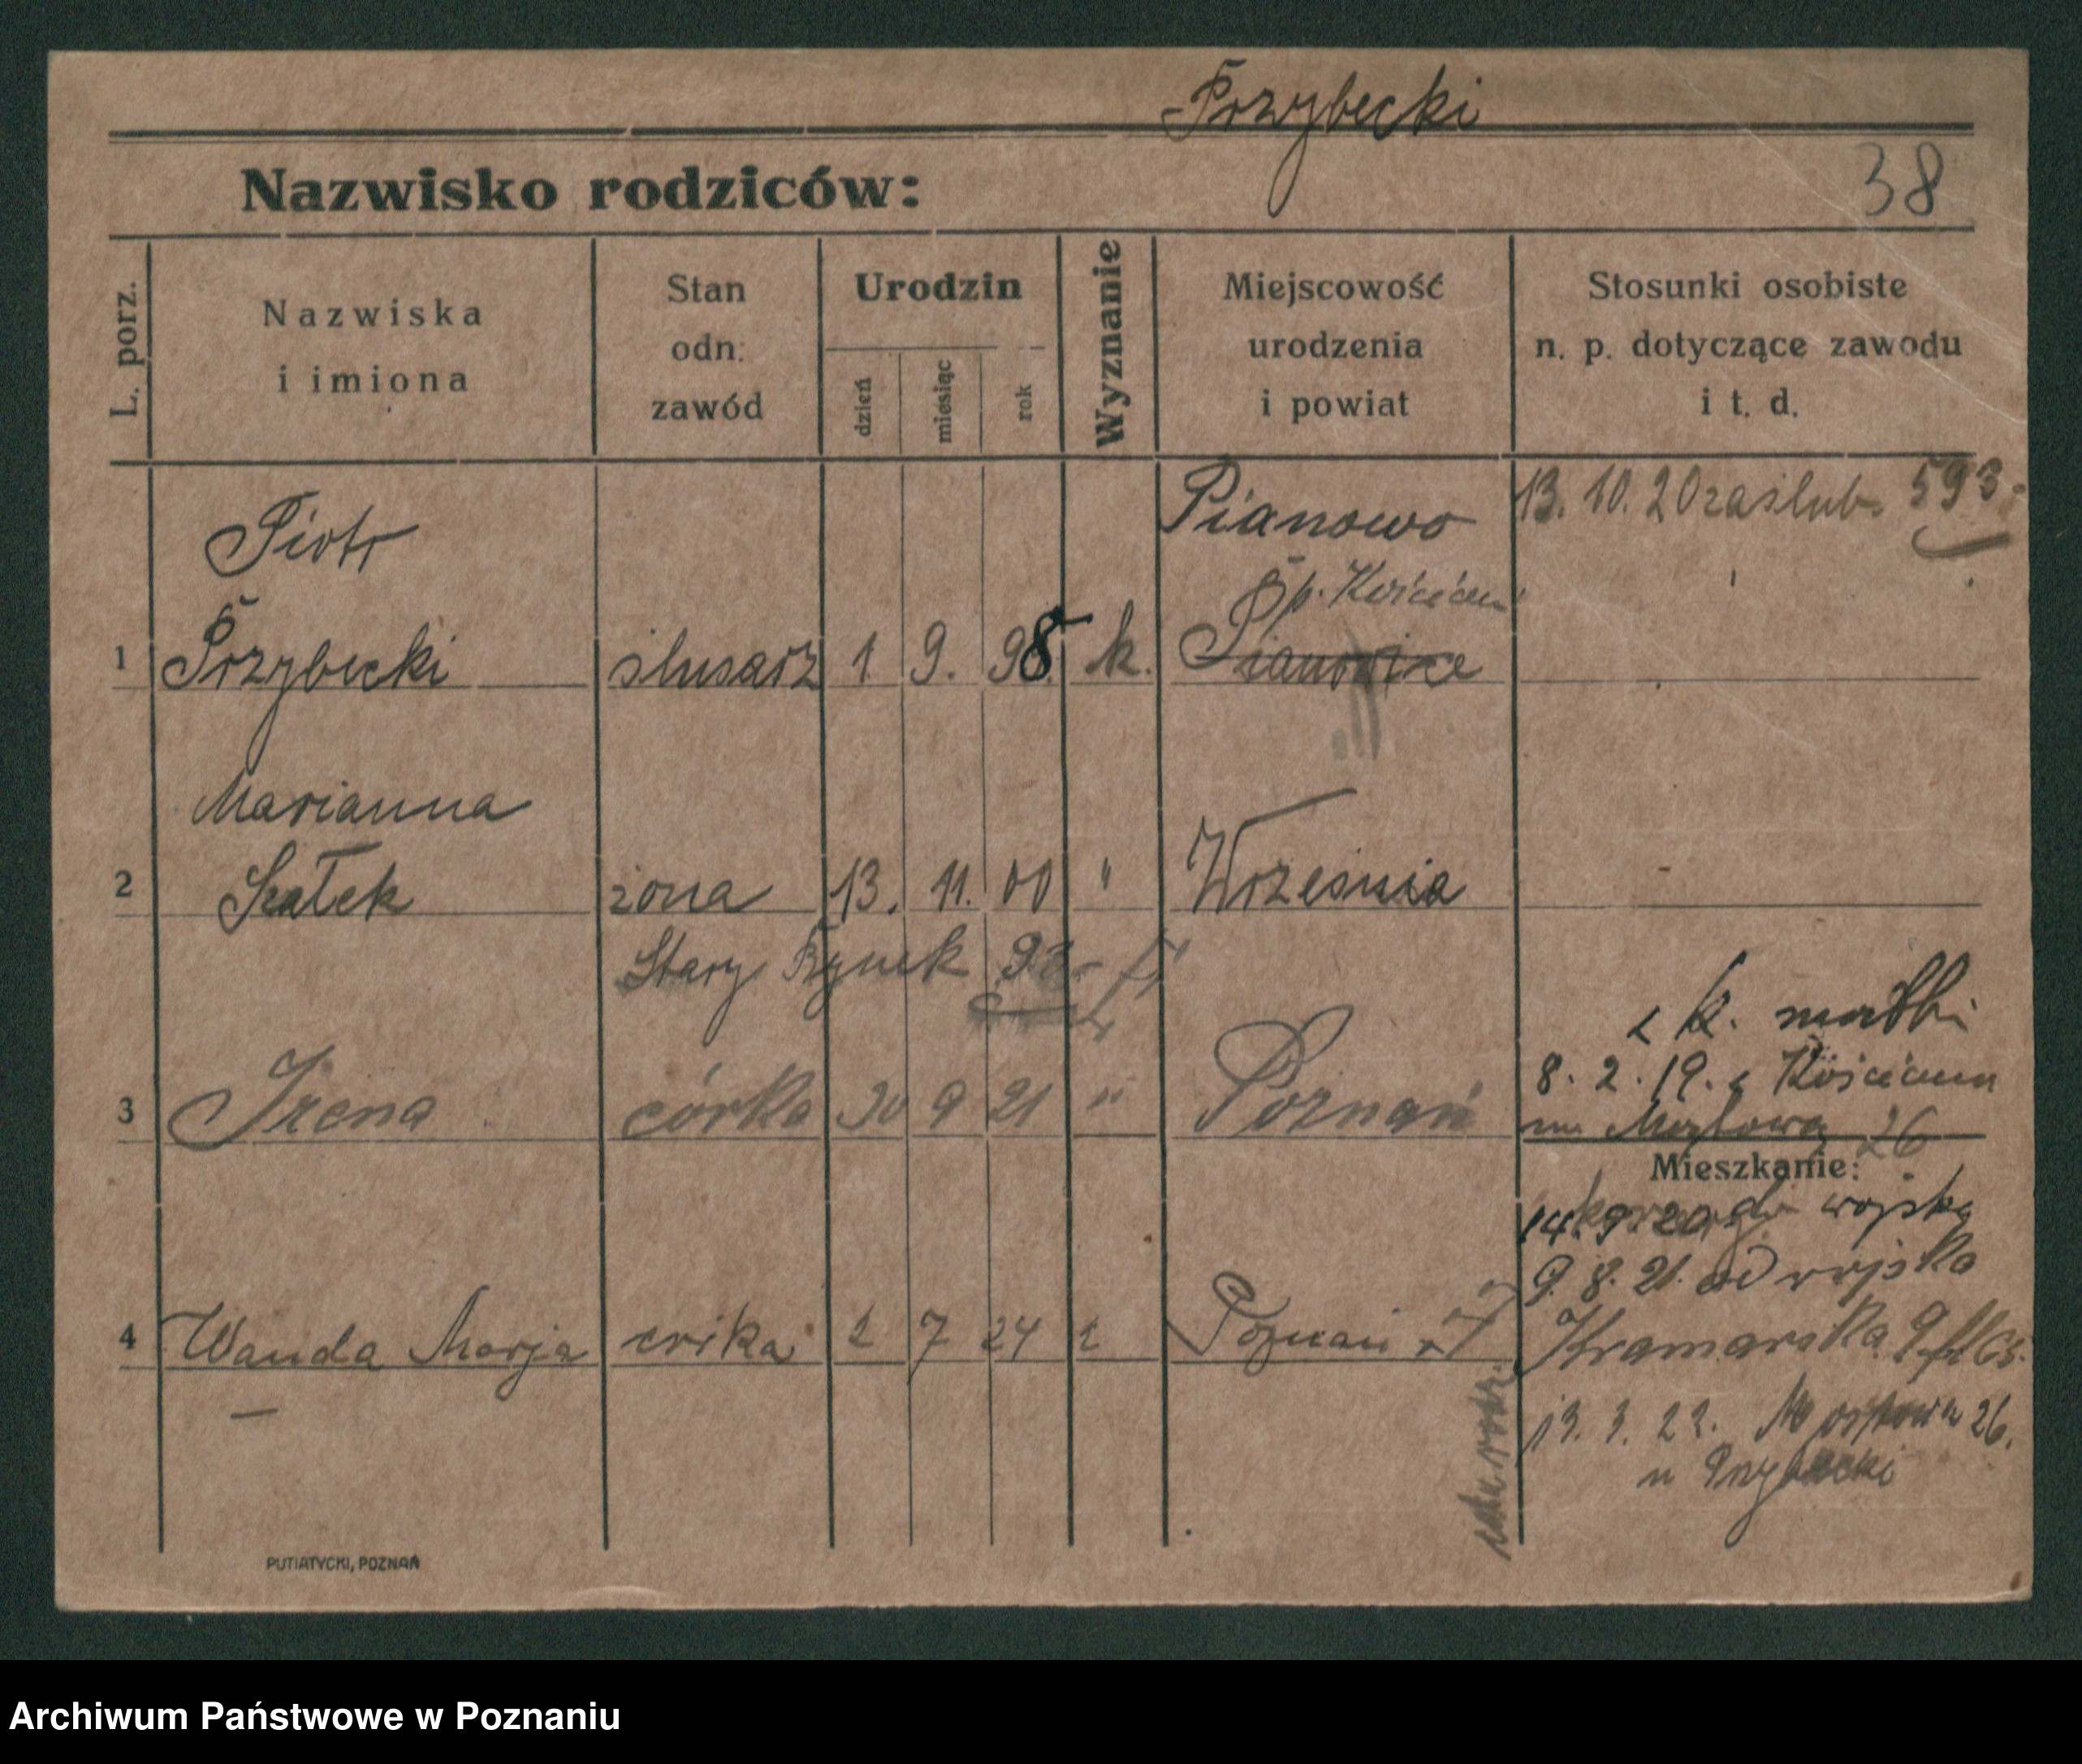 Przybecki
Nazwisko rodziców:
38
L. porz.
Nazwiska
i imiona
Stan
odn.
zawód
Urodzin
dzień
miesiąc
rok
Wyznanie
Miejscowość
urodzenia
i powiat
Stosunki osobiste
n. p. dotyczące zawodu
i t. d.
Piotr
Pianowo
13. 10. 20 zaślub. 593.
p. Kościan
1 Przybecki ślusarz 1. 9. 98. k. Pianowice
Marianna
2 Szałek żona 13. 11. 00 " Września
Stary Rynek 93
k.
3 Irena córka 30 9 21 " Poznań
8. 2. 19. z Kościana
26
Mieszkanie:
14. 9. 20 wojska
9. 8. 21. od wojska
4 Wanda Marja córka 2 7 24 Poznań
Kramarska 9
13. 3. 22. Mostowa 26.
u Przybecki
PUTIATYCKI, POZNAŃ
Archiwum Państwowe w Poznaniu